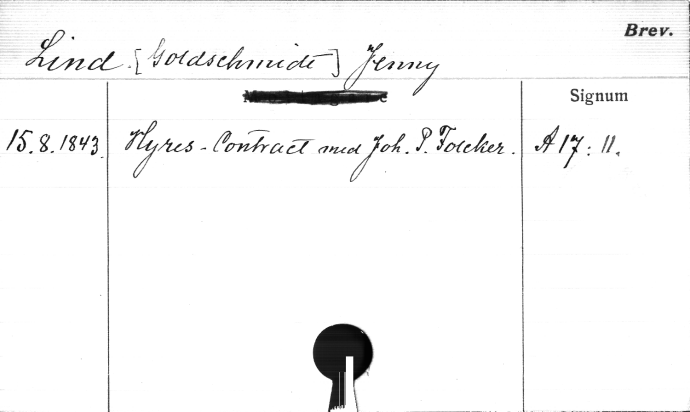 Brev.
Lind [Goldschmidt] Jenny
Signum
15.8.1843. Hyres-Contract med Joh. P. Folcker. A 17: 11.